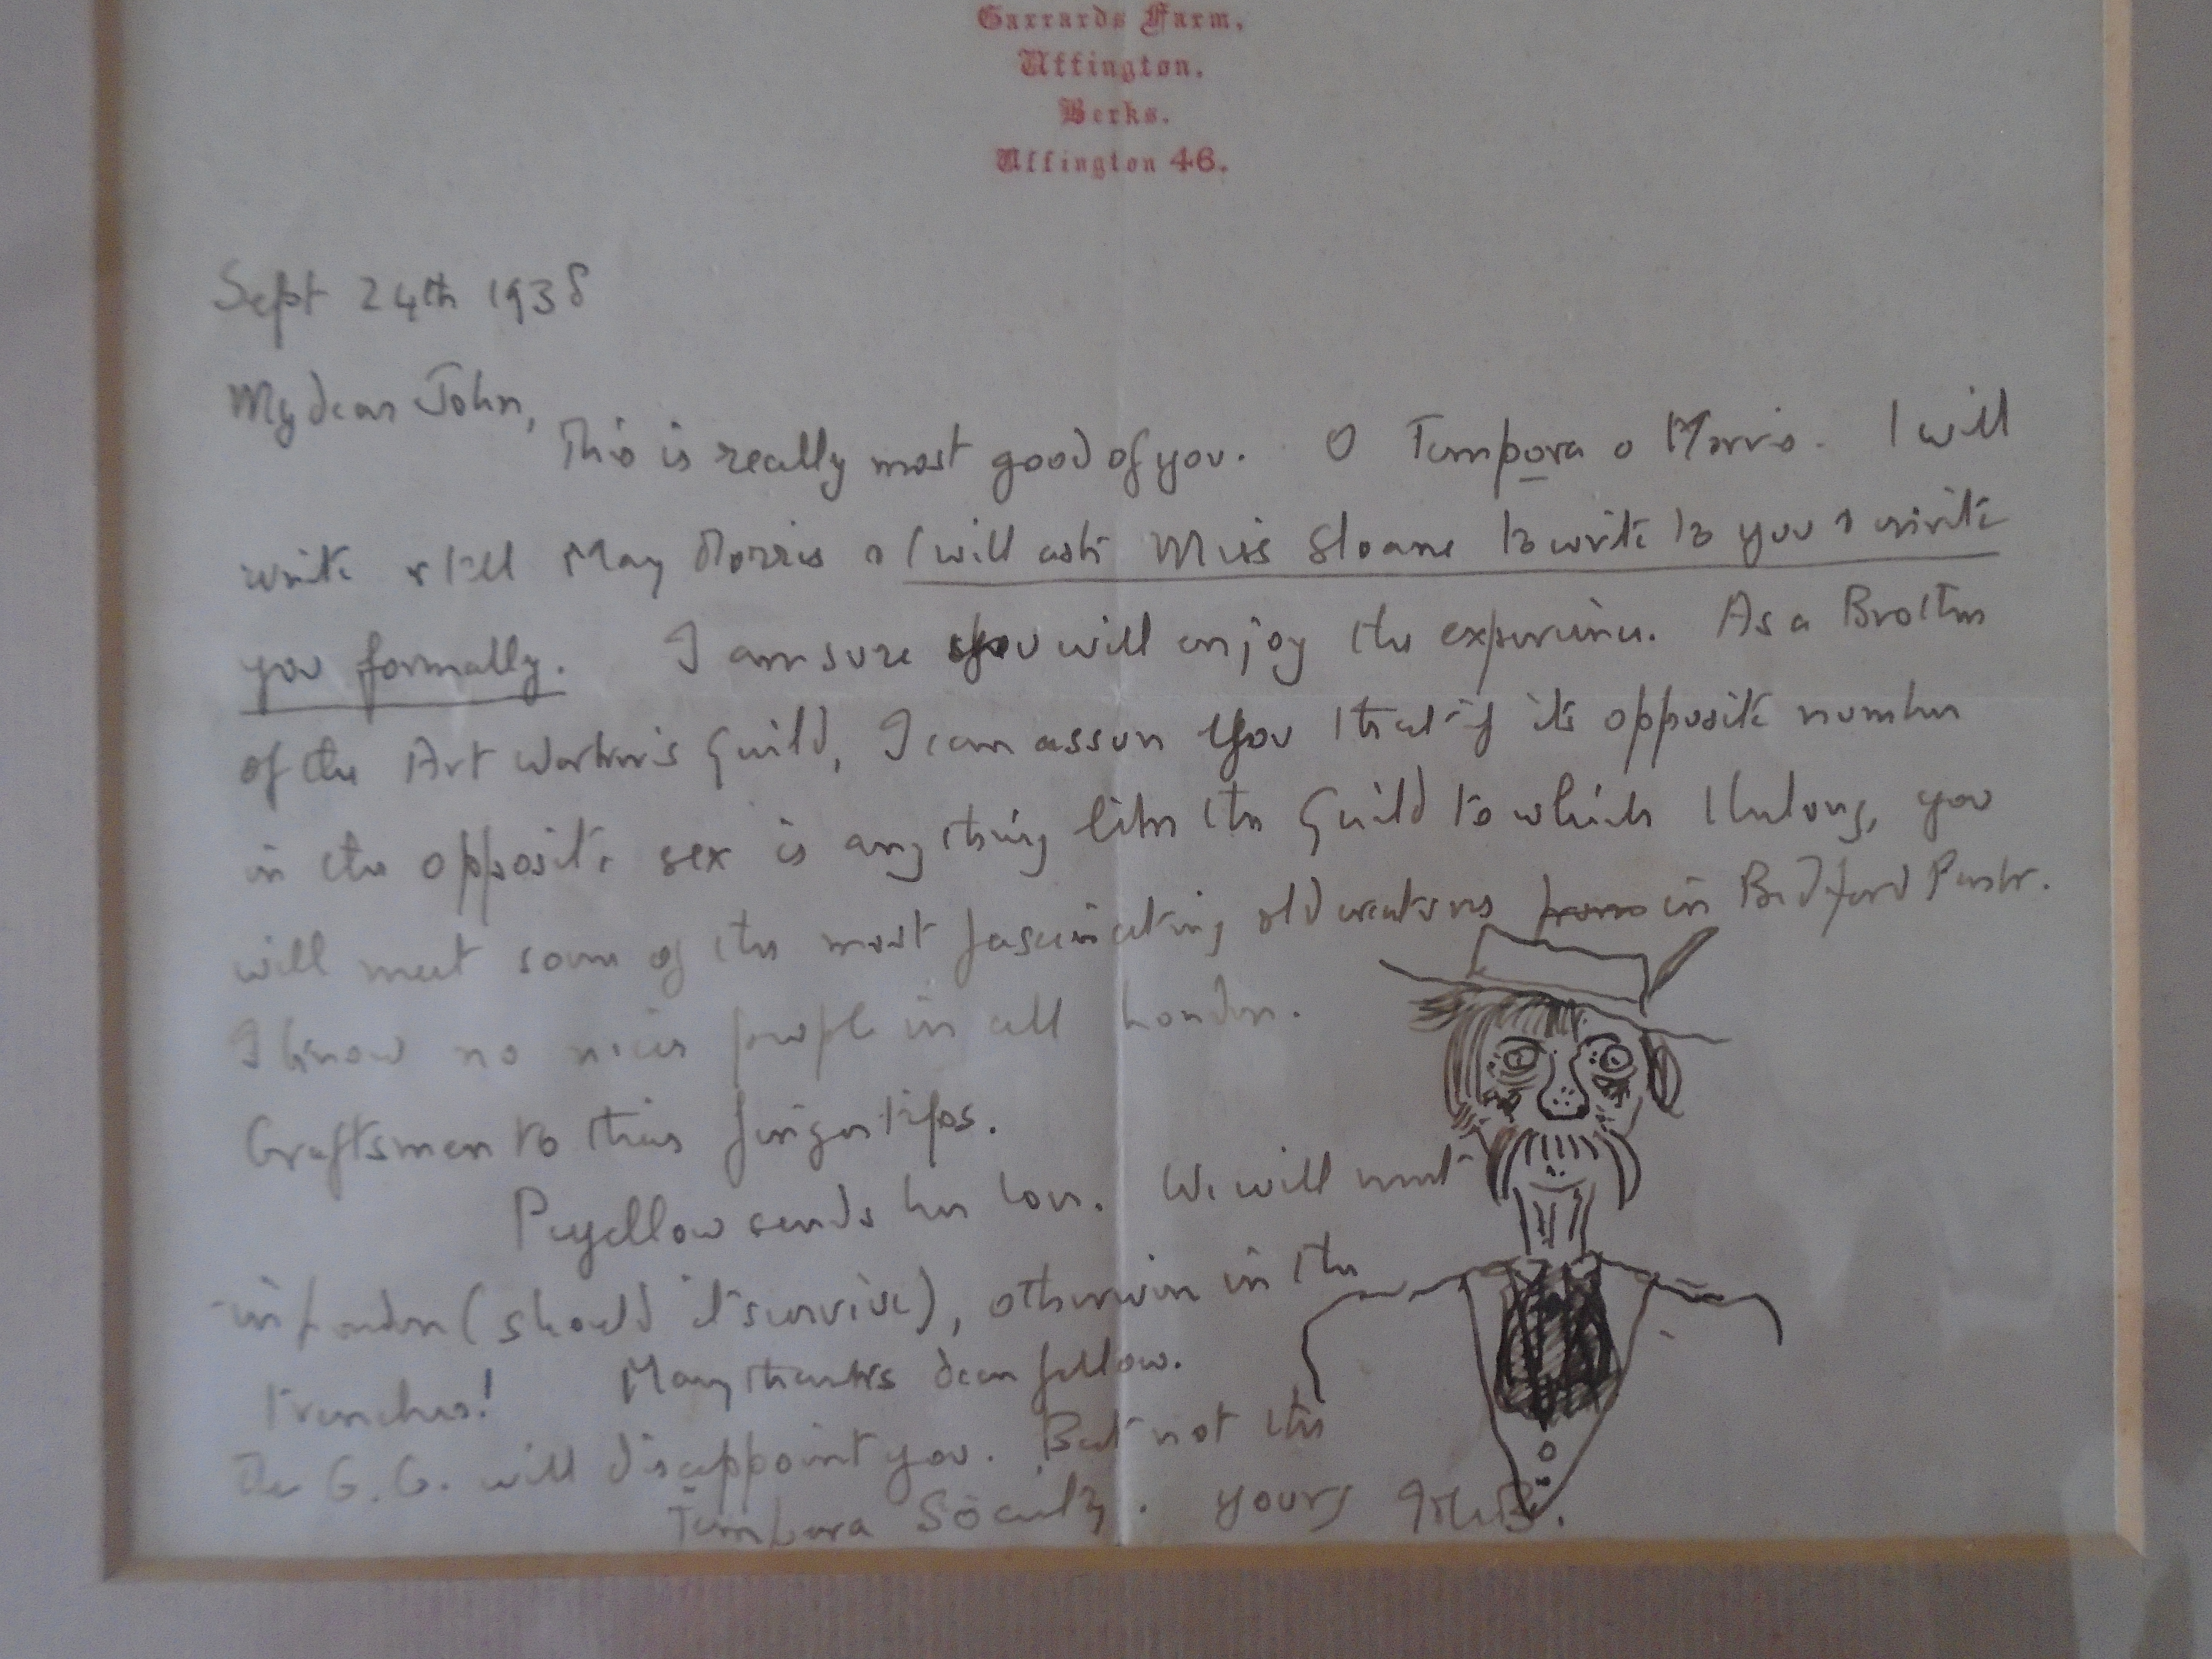 Garrards Farm,
Uffington,
Berks.
Uffington 46.
Sept 24th 1938
My dear John,
This is really most good of you. O Tempora o Morris. I will
write & tell May Morris & I will ask Miss Sloane to write to you & invite
you formally. I am sure you will enjoy the experience. As a Brother
of the Art Worker's Guild, I can assure you that if its opposite number
in the opposite sex is anything like the Guild to which I belong, you
will meet some of the most fascinating old creatures from in Bedford Park.
I know no nicer people in all London.
Craftsmen to their finger tips.
sends her love. We will meet
in London (should it survive), otherwise in the
trenches! Many thanks dear fellow.
The G.G. will disappoint you. But not the
Tempora Society. Yours